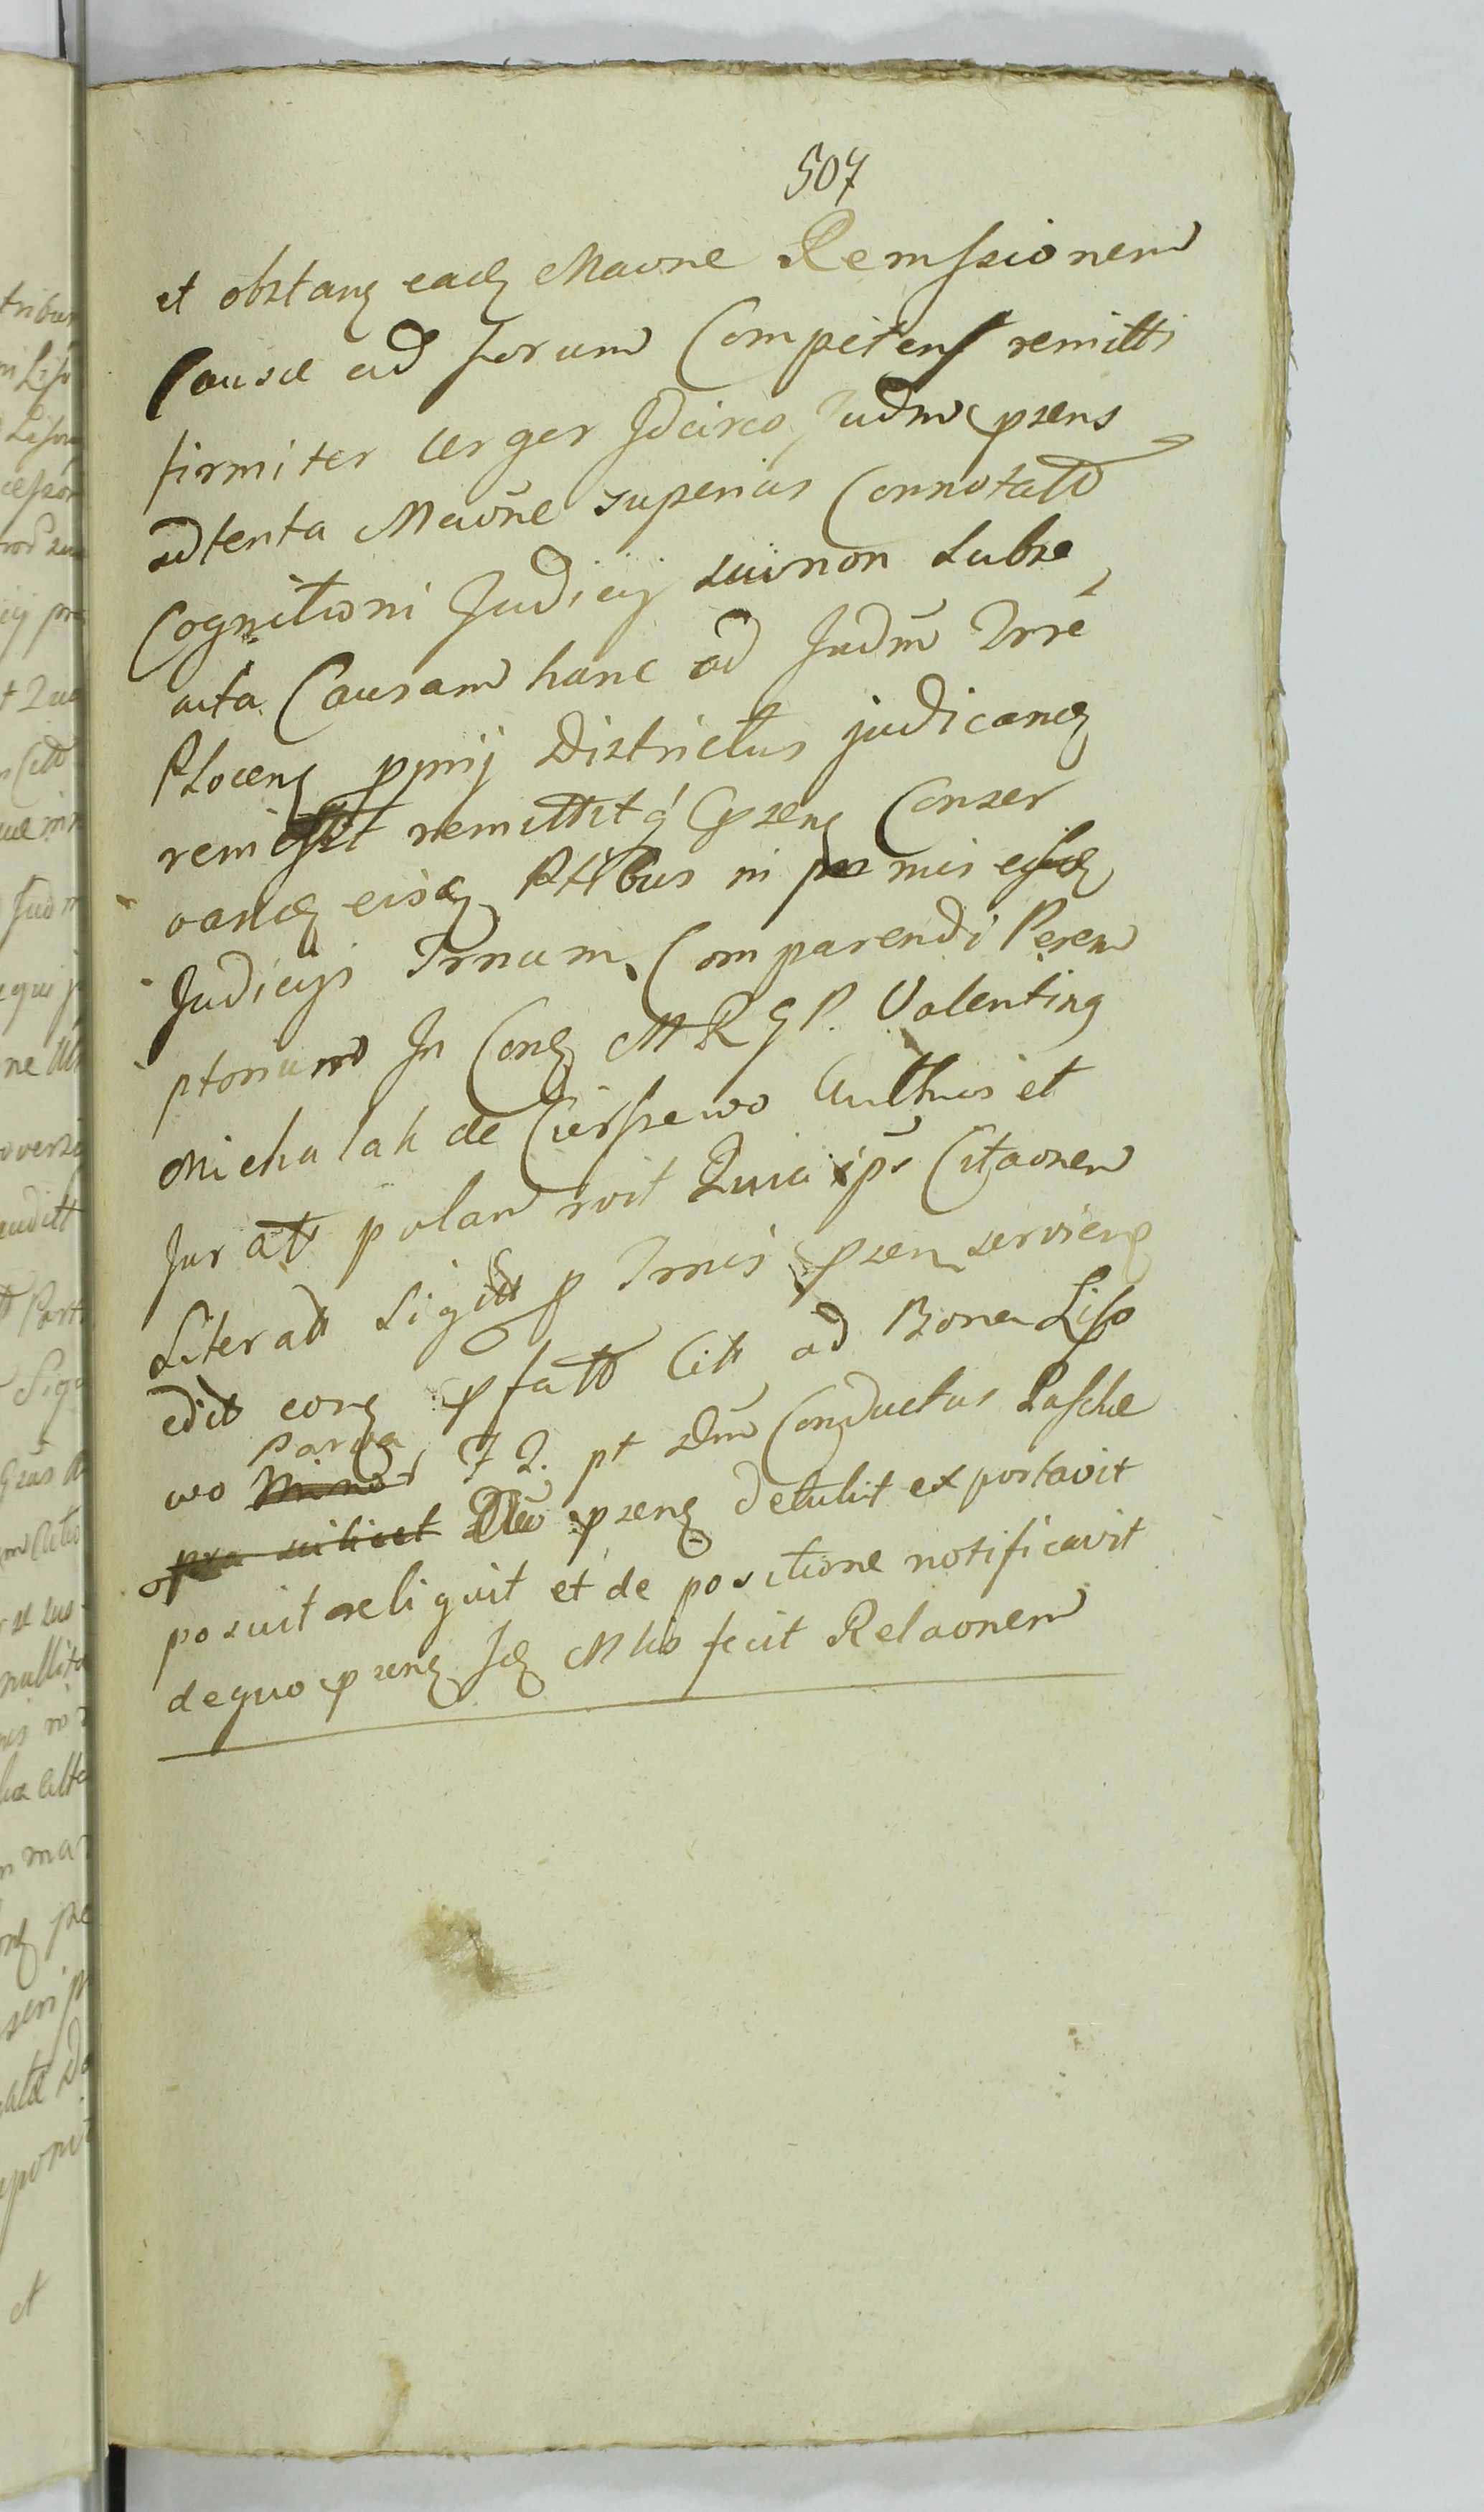 507
et obstang eadz Maone Remssionem
Causæ ad forum Competens remitti
firmiter urger Idcirco Judm psens
adtenta Maone superius Connotatt
Cognitioni Judicij sui non subse
cuta Causam hanc ad Judm Trre
Ploceng pprij Districtus judicandz
remissit remittitq psenz Conser
vandz eisdz Ptibus in pmis ejusdz
Judicijs Trnum Comparendi Perem
ptorium In Condz MRGP. Valenting
Michalak de Ciersewo Authus et
Juratt palam roit Quia ips Citaonem
Literatt Sigitt p Trnis psen serviend
editt eorz pfatt Citt ad Bona Liso
wo Parva Minor F 2. pt Dm Conductus Paschæ
psenz detulit exportavit
posuit reliquit et de positione notificavit
dequo psenz Idz Mlis fecit Relaonem